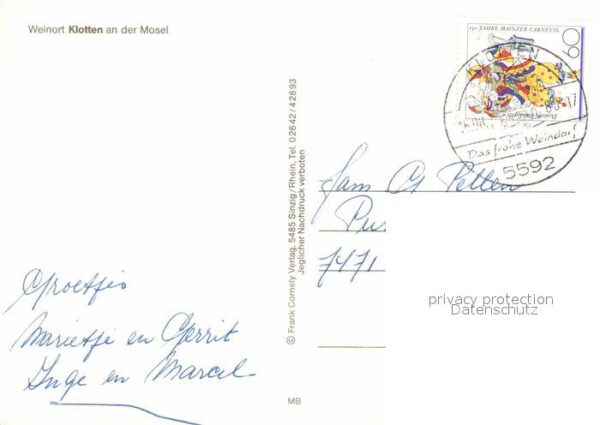 Weinort Klotten an der Mosel
150 JAHRE MAINZER CARNEVAL
60
KLOTTEN
17
Das frohe Weindorf
5592
© Frank Cornely Verlag, 5485 Sinzig/Rhein, Tel. 02642/42893
Jeglicher Nachdruck verboten
Fam
7471
privacy protection
Datenschutz
Groetjes
Marietje en Gerrit
Inge en Marcel
MB